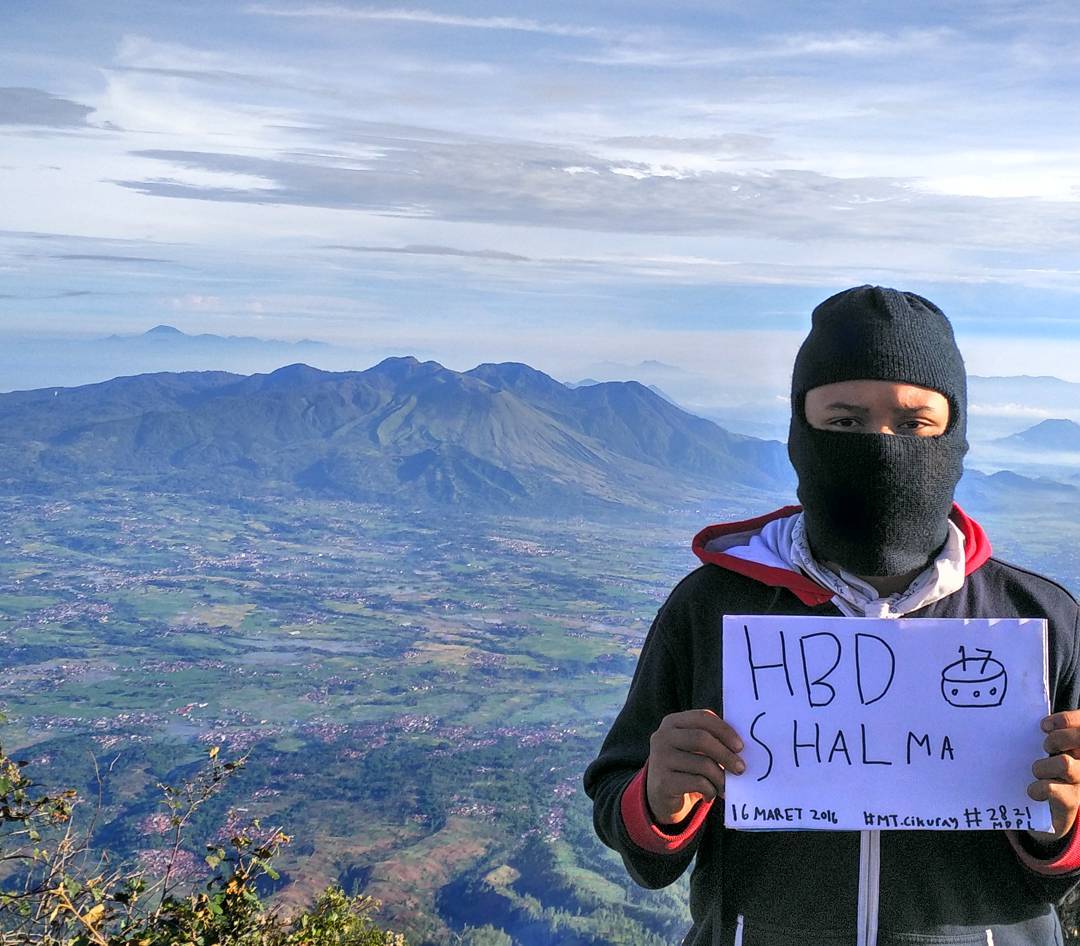 HBD
17
SHALMA
16 MARET 2016 #MT.CIKURAY #2821
MDPL